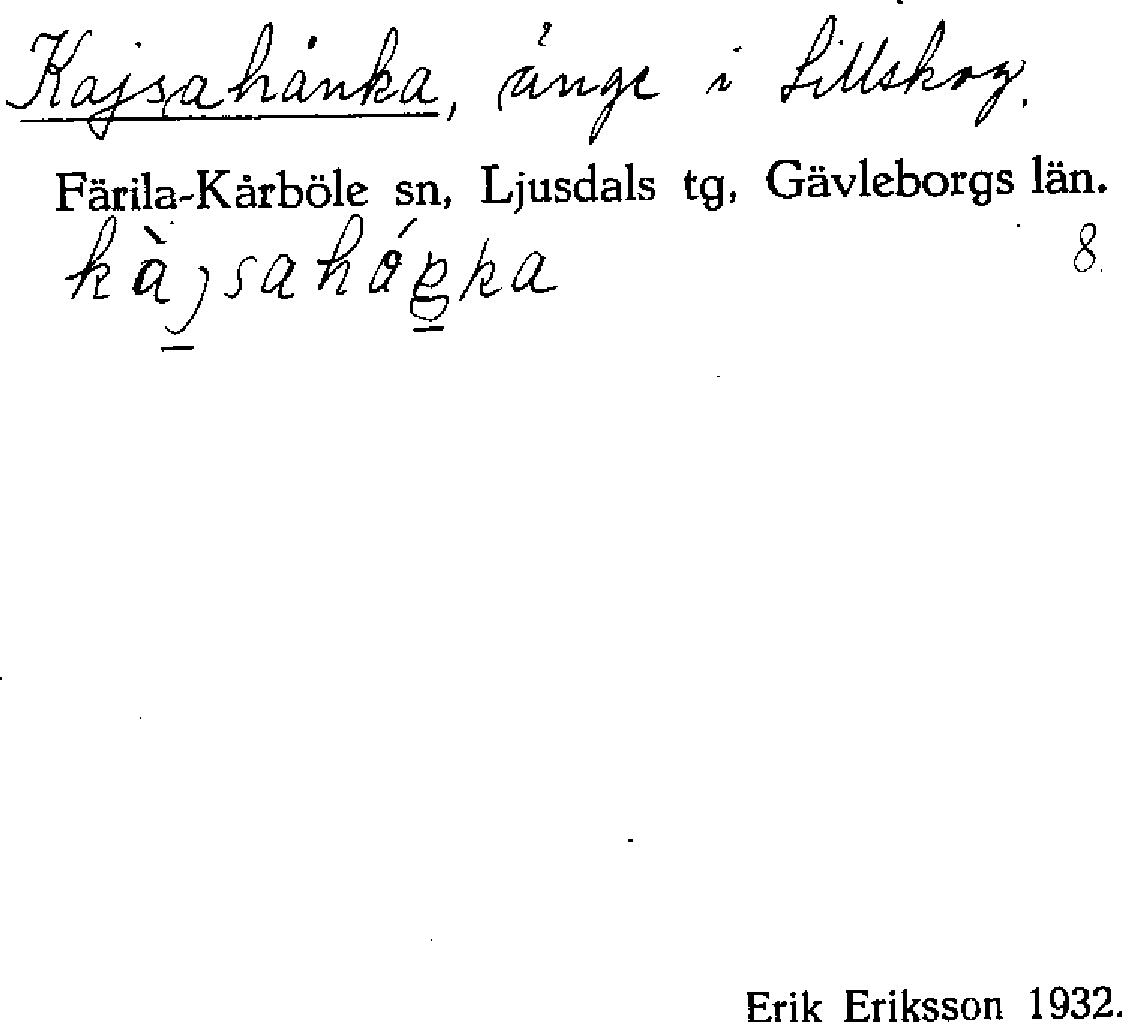 Kajsahånka, änge i Lillskog.
Färila-Kårböle sn, Ljusdals tg, Gävleborgs län.
8.
Erik Eriksson 1932.